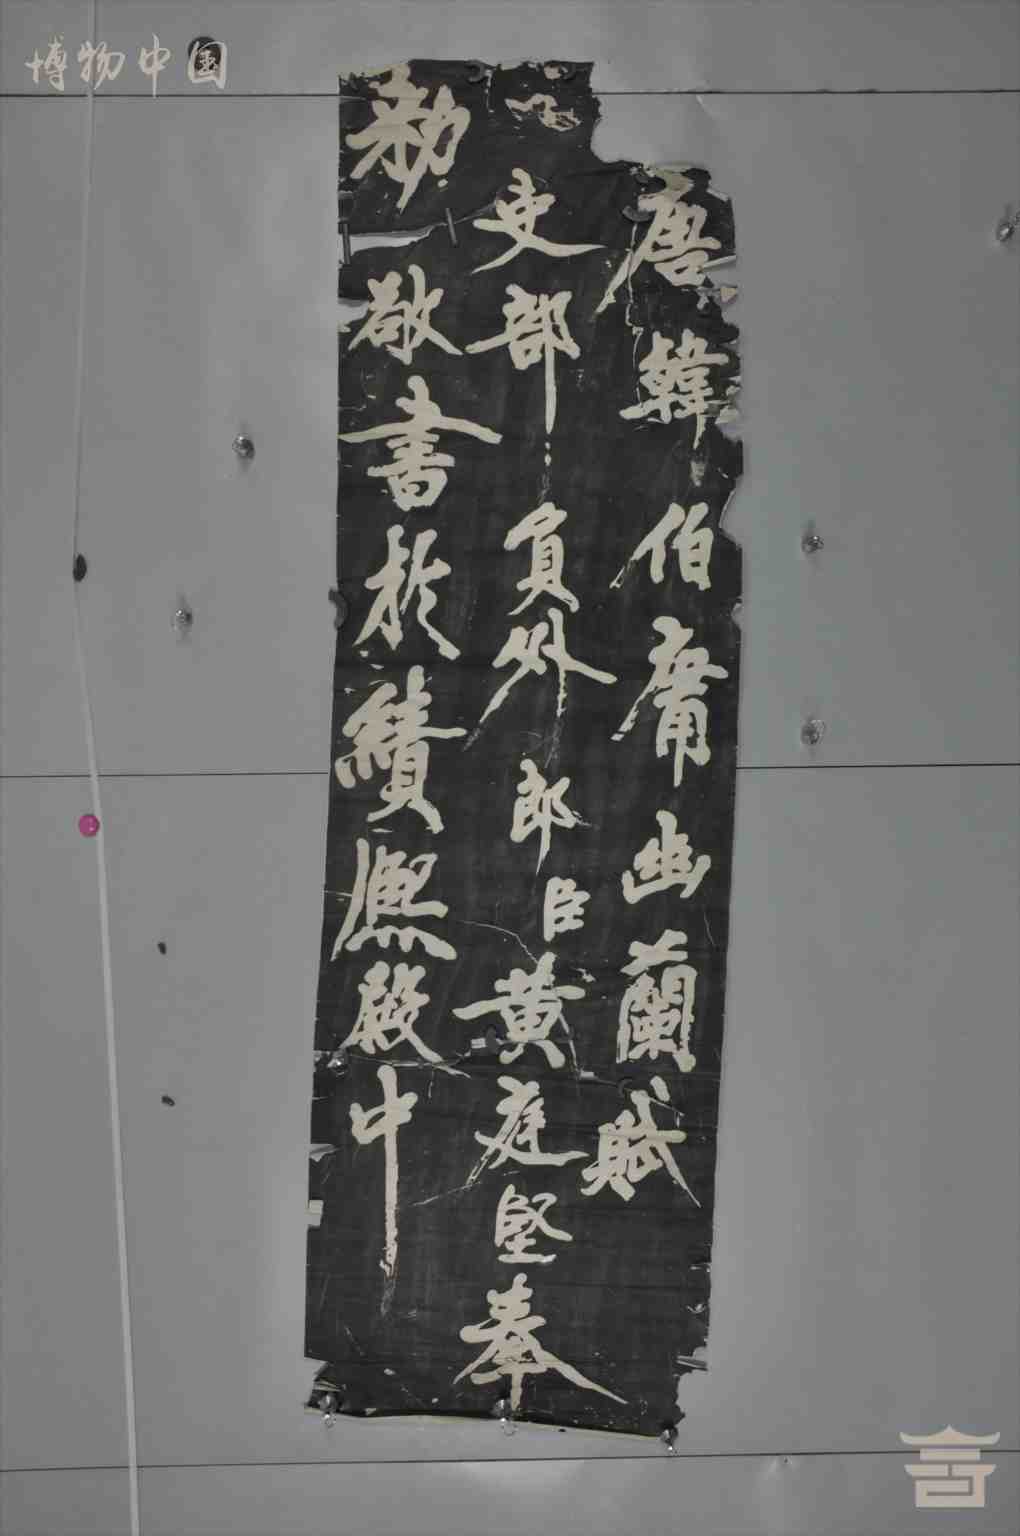 博物中国
唐韓伯庸幽蘭賦
吏部員外郎臣黄庭堅奉
勅敬書於績熈殿中